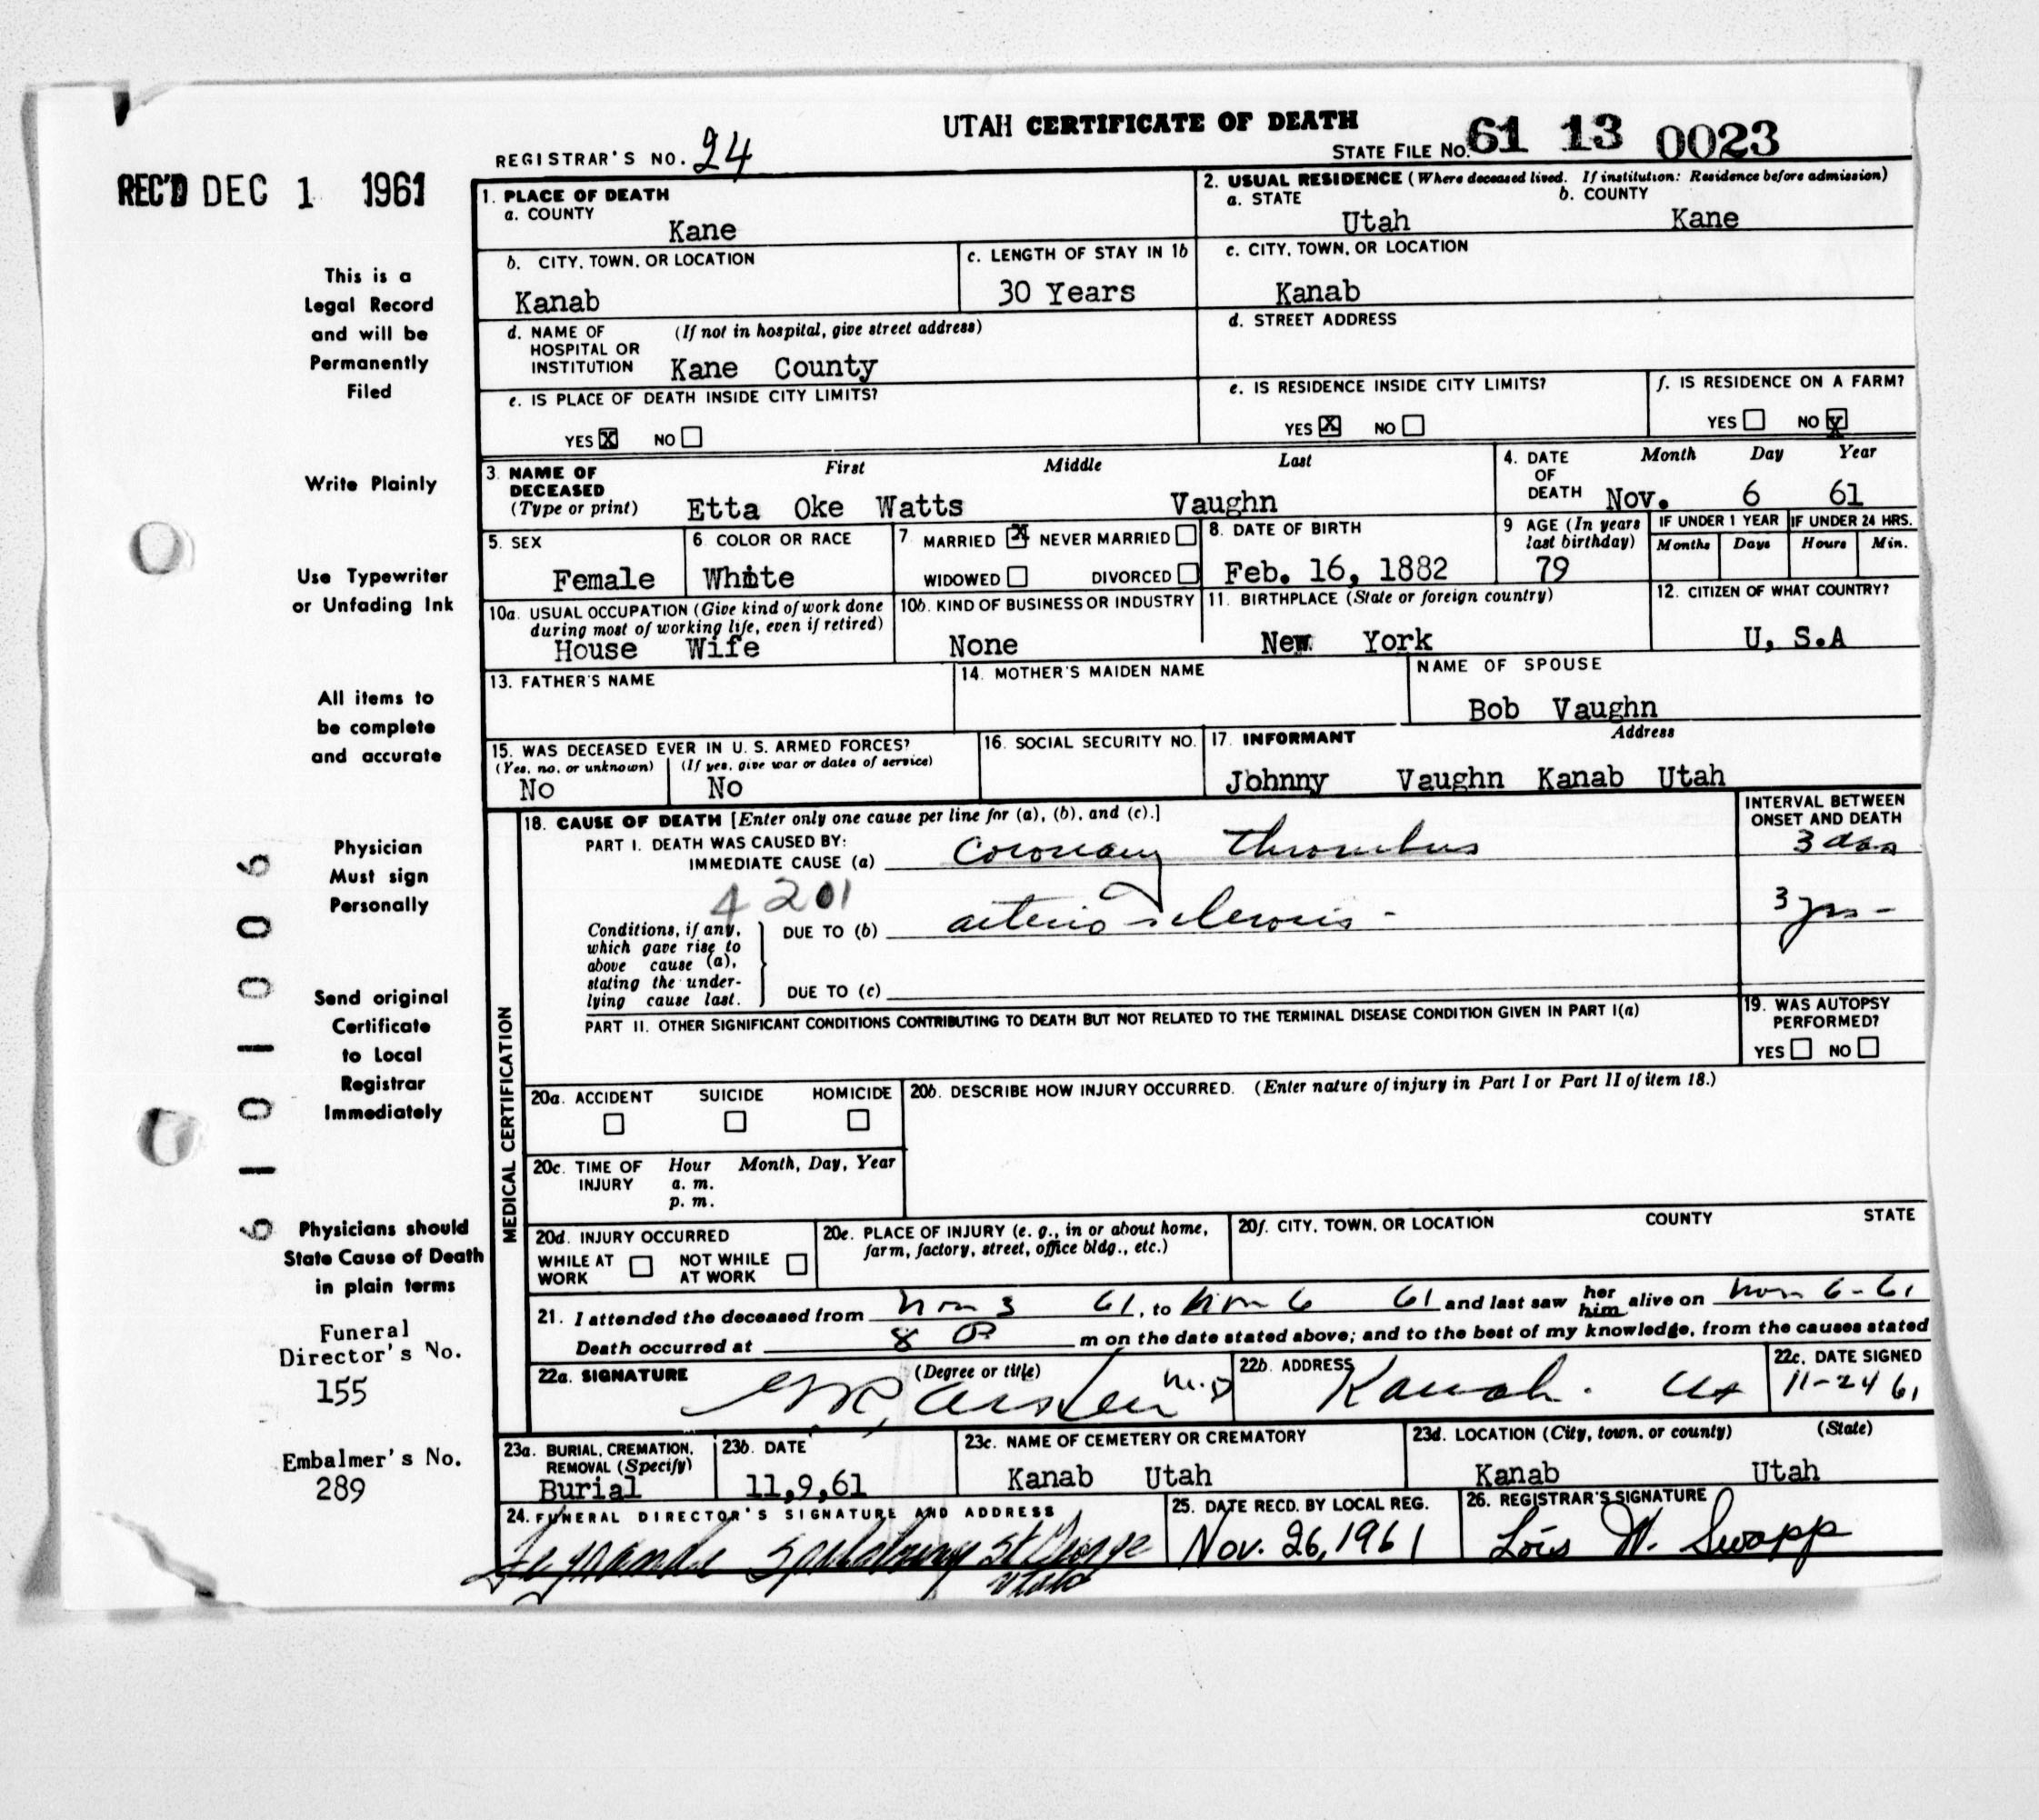 UTAH CERTIFICATE OF DEATH
REGISTRAR'S NO. 24
STATE FILE NO. 61 13 0023
REC'D DEC 1 1961
This is a
Legal Record
and will be
Permanently
Filed
Write Plainly
Use Typewriter
or Unfading Ink
All items to
be complete
and accurate
Physician
Must sign
Personally
Send original
Certificate
to Local
Registrar
Immediately
Physicians should
State Cause of Death
in plain terms
Funeral
Director's No.
155
Embalmer's No.
289
1. PLACE OF DEATH
a. COUNTY
Kane
2. USUAL RESIDENCE (Where deceased lived. If institution: Residence before admission)
a. STATE b. COUNTY
Utah Kane
b. CITY, TOWN, OR LOCATION
Kanab
c. LENGTH OF STAY IN 1b
30 Years
c. CITY, TOWN, OR LOCATION
Kanab
d. NAME OF (If not in hospital, give street address)
HOSPITAL OR
INSTITUTION Kane County
d. STREET ADDRESS
e. IS PLACE OF DEATH INSIDE CITY LIMITS?
YES X NO
e. IS RESIDENCE INSIDE CITY LIMITS?
YES X NO
f. IS RESIDENCE ON A FARM?
YES NO X
3. NAME OF DECEASED (Type or print)
First Middle Last
Etta Oke Watts Vaughn
4. DATE OF DEATH
Month Day Year
Nov. 6 61
5. SEX
Female
6 COLOR OR RACE
White
7 MARRIED X NEVER MARRIED
WIDOWED DIVORCED
8. DATE OF BIRTH
Feb. 16, 1882
9 AGE (In years
last birthday)
79
IF UNDER 1 YEAR
Months Days
IF UNDER 24 HRS.
Hours Min.
10a. USUAL OCCUPATION (Give kind of work done
during most of working life, even if retired)
House Wife
10b. KIND OF BUSINESS OR INDUSTRY
None
11. BIRTHPLACE (State or foreign country)
New York
12. CITIZEN OF WHAT COUNTRY?
U, S.A
13. FATHER'S NAME
14. MOTHER'S MAIDEN NAME
NAME OF SPOUSE
Bob Vaughn
15. WAS DECEASED EVER IN U. S. ARMED FORCES?
(Yes, no, or unknown) (If yes, give war or dates of service)
No No
16. SOCIAL SECURITY NO.
17. INFORMANT Address
Johnny Vaughn Kanab Utah
MEDICAL CERTIFICATION
18. CAUSE OF DEATH [Enter only one cause per line for (a), (b), and (c).]
PART I. DEATH WAS CAUSED BY:
IMMEDIATE CAUSE (a) Coronary Thrombus
INTERVAL BETWEEN
ONSET AND DEATH
3 das
4201
Conditions, if any,
which gave rise to
above cause (a),
stating the under-
lying cause last.
DUE TO (b) arterio sclerosis -
3 yrs -
DUE TO (c)
PART II. OTHER SIGNIFICANT CONDITIONS CONTRIBUTING TO DEATH BUT NOT RELATED TO THE TERMINAL DISEASE CONDITION GIVEN IN PART I(a)
19. WAS AUTOPSY
PERFORMED?
YES NO
20a. ACCIDENT SUICIDE HOMICIDE
20b. DESCRIBE HOW INJURY OCCURRED. (Enter nature of injury in Part I or Part II of item 18.)
20c. TIME OF INJURY
Hour Month, Day, Year
a. m.
p. m.
20d. INJURY OCCURRED
WHILE AT WORK NOT WHILE AT WORK
20e. PLACE OF INJURY (e. g., in or about home,
farm, factory, street, office bldg., etc.)
20f. CITY, TOWN, OR LOCATION COUNTY STATE
21. I attended the deceased from Nov 3 61, to Nov 6 61 and last saw her him alive on Nov 6-61
Death occurred at 8 P m on the date stated above; and to the best of my knowledge, from the causes stated
22a. SIGNATURE (Degree or title)
M.D
22b. ADDRESS
Kanab. Ut
22c. DATE SIGNED
11-24 61
23a. BURIAL, CREMATION,
REMOVAL (Specify)
Burial
23b. DATE
11,9,61
23c. NAME OF CEMETERY OR CREMATORY
Kanab Utah
23d. LOCATION (City, town, or county) (State)
Kanab Utah
24. FUNERAL DIRECTOR'S SIGNATURE AND ADDRESS
St George
Utah
25. DATE RECD. BY LOCAL REG.
Nov. 26, 1961
26. REGISTRAR'S SIGNATURE
Lois W. Swapp
61 01006